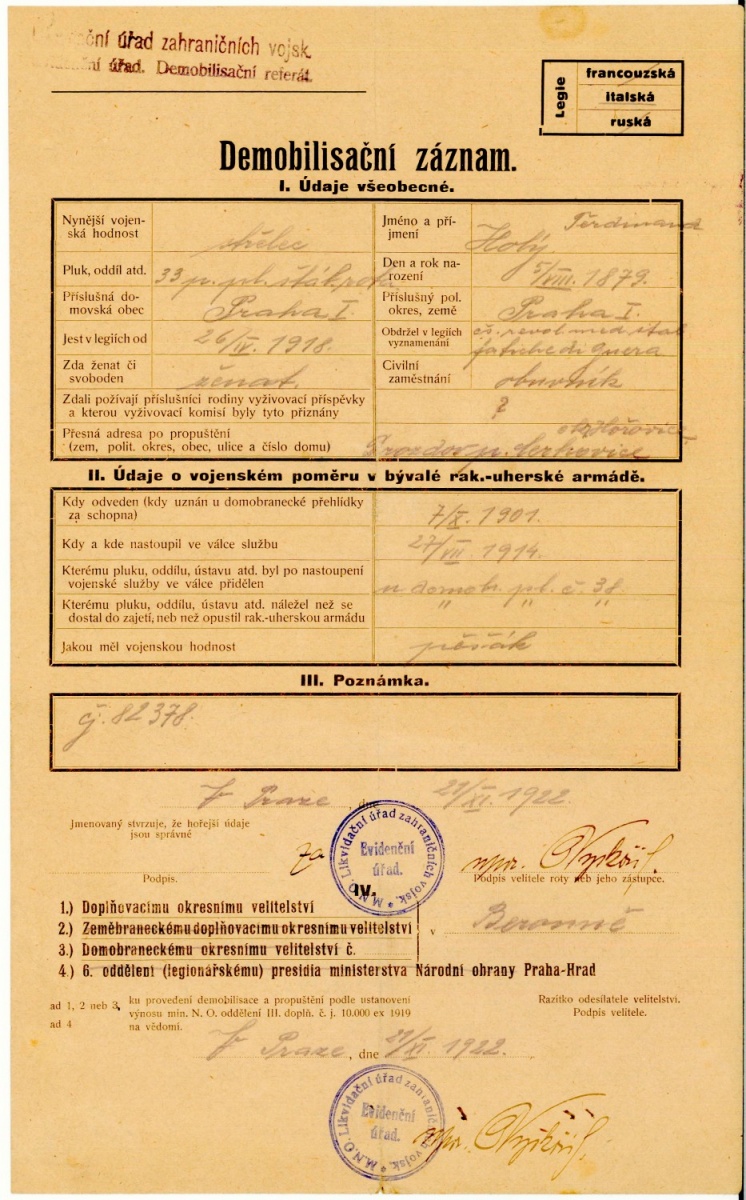 úřad zahraničních vojsk.
úřad. Demobilisační referát.
Legie
francouzská
italská
ruská
Demobilisační záznam.
I. Údaje všeobecné.
Nynější vojen-
ská hodnost
střelec
Jméno a pří-
jmení
Holý Ferdinand
Pluk, oddíl atd.
33 p. pl. šták. rota
Den a rok na-
rození
5/VIII. 1879.
Příslušná do-
movská obec
Praha I.
Příslušný pol.
okres, země
Praha I.
Jest v legiích od
26/IV. 1918.
Obdržel v legiích
vyznamenání
čs. revol. med. ital
fatiche di guera
Zda ženat či
svoboden
ženat.
Civilní
zaměstnání
obuvník
Zdali požívají příslušníci rodiny vyživovací příspěvky
a kterou vyživovací komisí byly tyto přiznány
?
Přesná adresa po propuštění
(zem, polit. okres, obec, ulice a číslo domu)
Hořovice
II. Údaje o vojenském poměru v bývalé rak.-uherské armádě.
Kdy odveden (kdy uznán u domobranecké přehlídky
za schopna)
7/X. 1901.
Kdy a kde nastoupil ve válce službu
27/VII. 1914.
Kterému pluku, oddílu, ústavu atd. byl po nastoupení
vojenské služby ve válce přidělen
u domob. pl. č. 38
Kterému pluku, oddílu, ústavu atd. náležel než se
dostal do zajetí, neb než opustil rak.-uherskou armádu
" " "
Jakou měl vojenskou hodnost
pěšák
III. Poznámka.
čj. 82378.
V Praze, dne 21/XI. 1922.
Jmenovaný stvrzuje, že hořejší údaje
jsou správné
za
M.N.O. Likvidační úřad zahraničních vojsk.
Evidenční
úřad.
IV.
Podpis.
Podpis velitele roty neb jeho zástupce.
1.) Doplňovacímu okresnímu velitelství
2.) Zeměbraneckému doplňovacímu okresnímu velitelství
3.) Domobraneckému okresnímu velitelství č.
v Berouně
4.) 6. oddělení (legionářskému) presidia ministerstva Národní obrany Praha-Hrad
ad 1, 2 neb 3, ku provedení demobilisace a propuštění podle ustanovení
výnosu min. N. O. oddělení III. doplň. č. j. 10.000 ex 1919
ad 4 na vědomí.
Razítko odesílatele velitelství.
Podpis velitele.
V Praze, dne 21/XI. 1922.
M.N.O. Likvidační úřad zahraničních vojsk.
Evidenční
úřad.